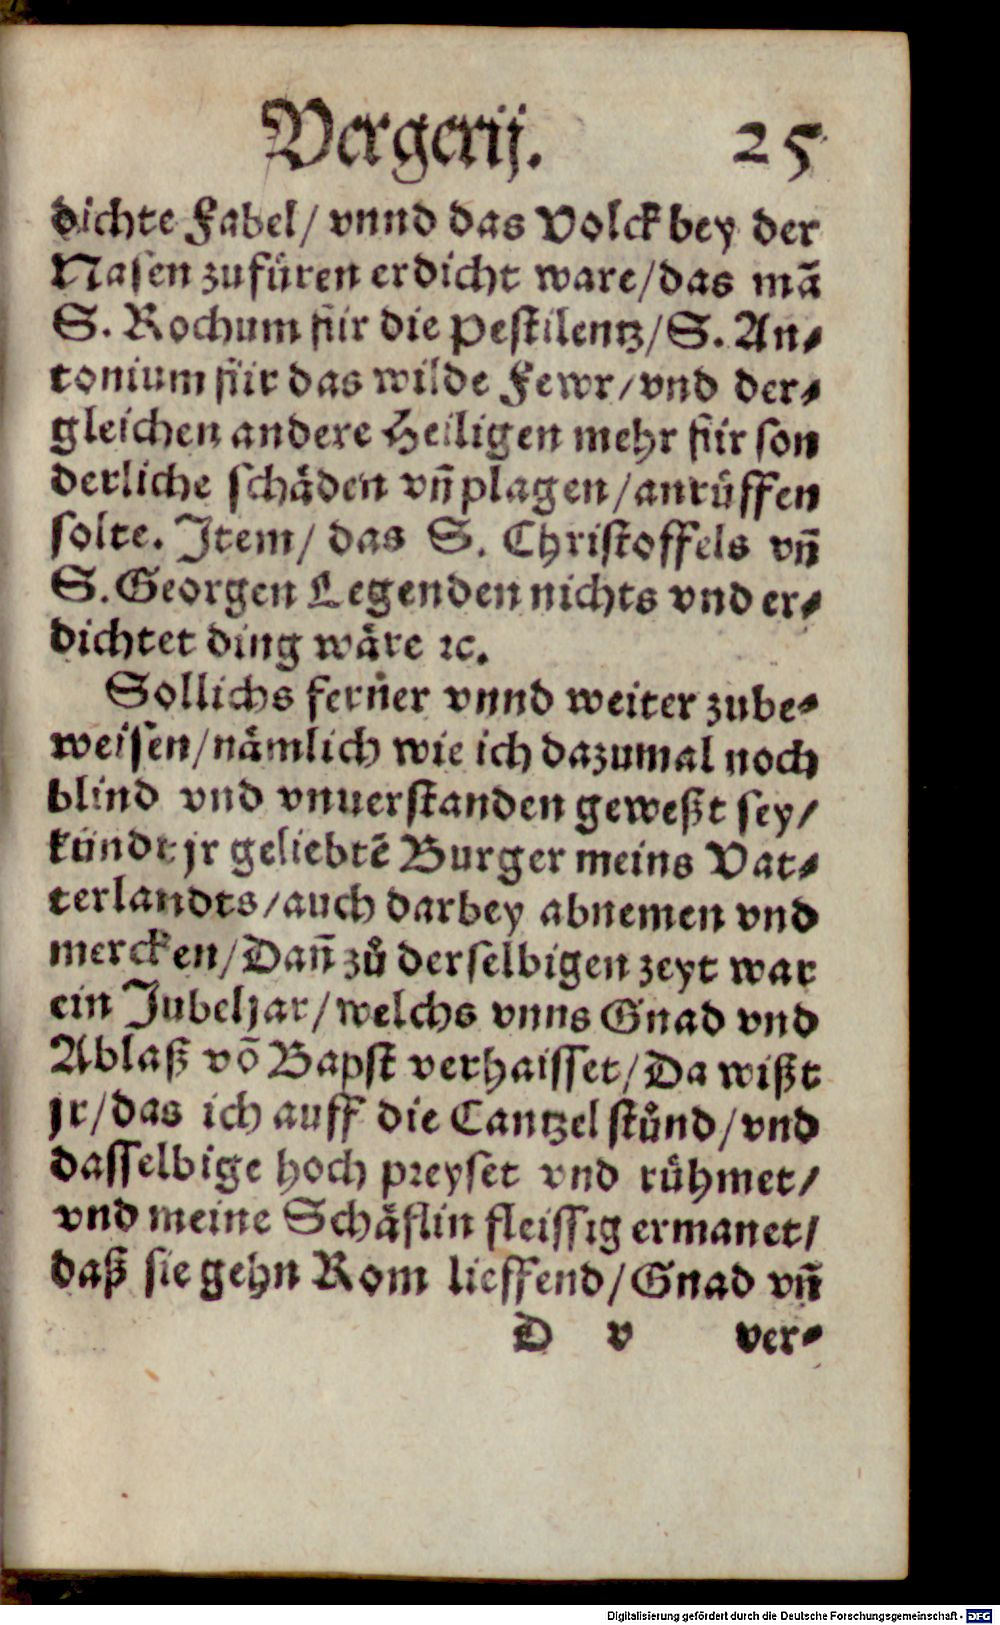 Vergerij. 25
dichte Fabel/ vnnd das Volck bey der
Nasen zufüren erdicht ware/das mā
S. Rochum für die Pestilentz/S. An-
tonium für das wilde Fewr/vnd der-
gleichen andere Heiligen mehr für son
derliche schäden vñ plagen/anrüffen
solte. Item/ das S. Christoffels vñ
S. Georgen Legenden nichts vnd er-
dichtet ding wäre ꝛc.
Sollichs ferner vnnd weiter zube-
weisen/nämlich wie ich dazumal noch
blind vnd vnuerstanden geweßt sey/
kündt jr geliebtē Burger meins Vat-
terlandts/auch darbey abnemen vnd
mercken/Dañ zů derselbigen zeyt war
ein Jubeljar/welchs vnns Gnad vnd
Ablaß vō Bapst verhaisset/Da wißt
jr/das ich auff die Cantzel stůnd/vnd
dasselbige hoch preyset vnd rühmet/
vnd meine Schäflin fleissig ermanet/
daß sie gehn Rom lieffend/Gnad vñ
D v ver-
Digitalisierung gefördert durch die Deutsche Forschungsgemeinschaft - DFG